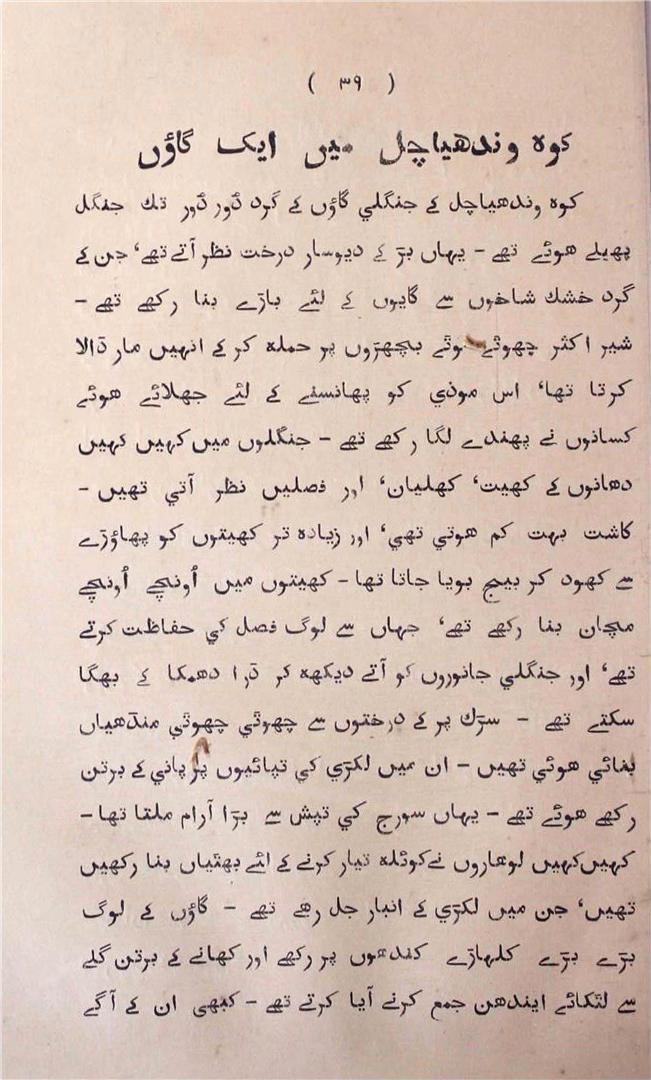 ( ۳۹ )
کوہ وندھیاچل میں ایک گاؤں
کوہ وندھیاچل کے جنگلي گاؤں کے گرد دُور دُور تك جنگل
پھیلے ھوئے تھے - یہاں بڑ کے دیوسار درخت نظر آتے تھے، جن کے
گرد خشك شاخوں سے گایوں کے لئے باڑے بنا رکھے تھے -
شیر اکثر چھوٹے بچھڑوں پر حملہ کر کے انہیں مار ڈالا
کرتا تھا، اس موذي کو پھانسنے کے لئے جھلائے ھوئے
کسانوں نے پھندے لگا رکھے تھے - جنگلوں میں کہیں کہیں
دھانوں کے کھیت، کھلیان، اور فصلیں نظر آتي تھیں -
کاشت بہت کم ھوتي تھي، اور زیادہ تر کھیتوں کو پھاؤڑے
سے کھود کر بیج بویا جاتا تھا - کھیتوں میں اُونچے اُونچے
مچان بنا رکھے تھے، جہاں سے لوگ فصل کي حفاظت کرتے
تھے، اور جنگلي جانوروں کو آتے دیکھہ کر ڈرا دھمکا کے بھگا
سکتے تھے - سڑك پر کے درختوں سے چھوٹي چھوٹي منڈھیاں
بنائي ھوئي تھیں - ان میں لکڑي کي تپائیوں پر پاني کے برتن
رکھے ھوئے تھے - یہاں سورج کي تپش سے بڑا آرام ملتا تھا -
کہیں کہیں لوھاروں نے کوئلہ تیار کرنے کے لئے بھٹیاں بنا رکھیں
تھیں، جن میں لکڑي کے انبار جل رھے تھے - گاؤں کے لوگ
بڑے بڑے کلہاڑے کندھوں پر رکھے اور کھانے کے برتن گلے
سے لٹکائے ایندھن جمع کرنے آیا کرتے تھے - کبھی ان کے آگے